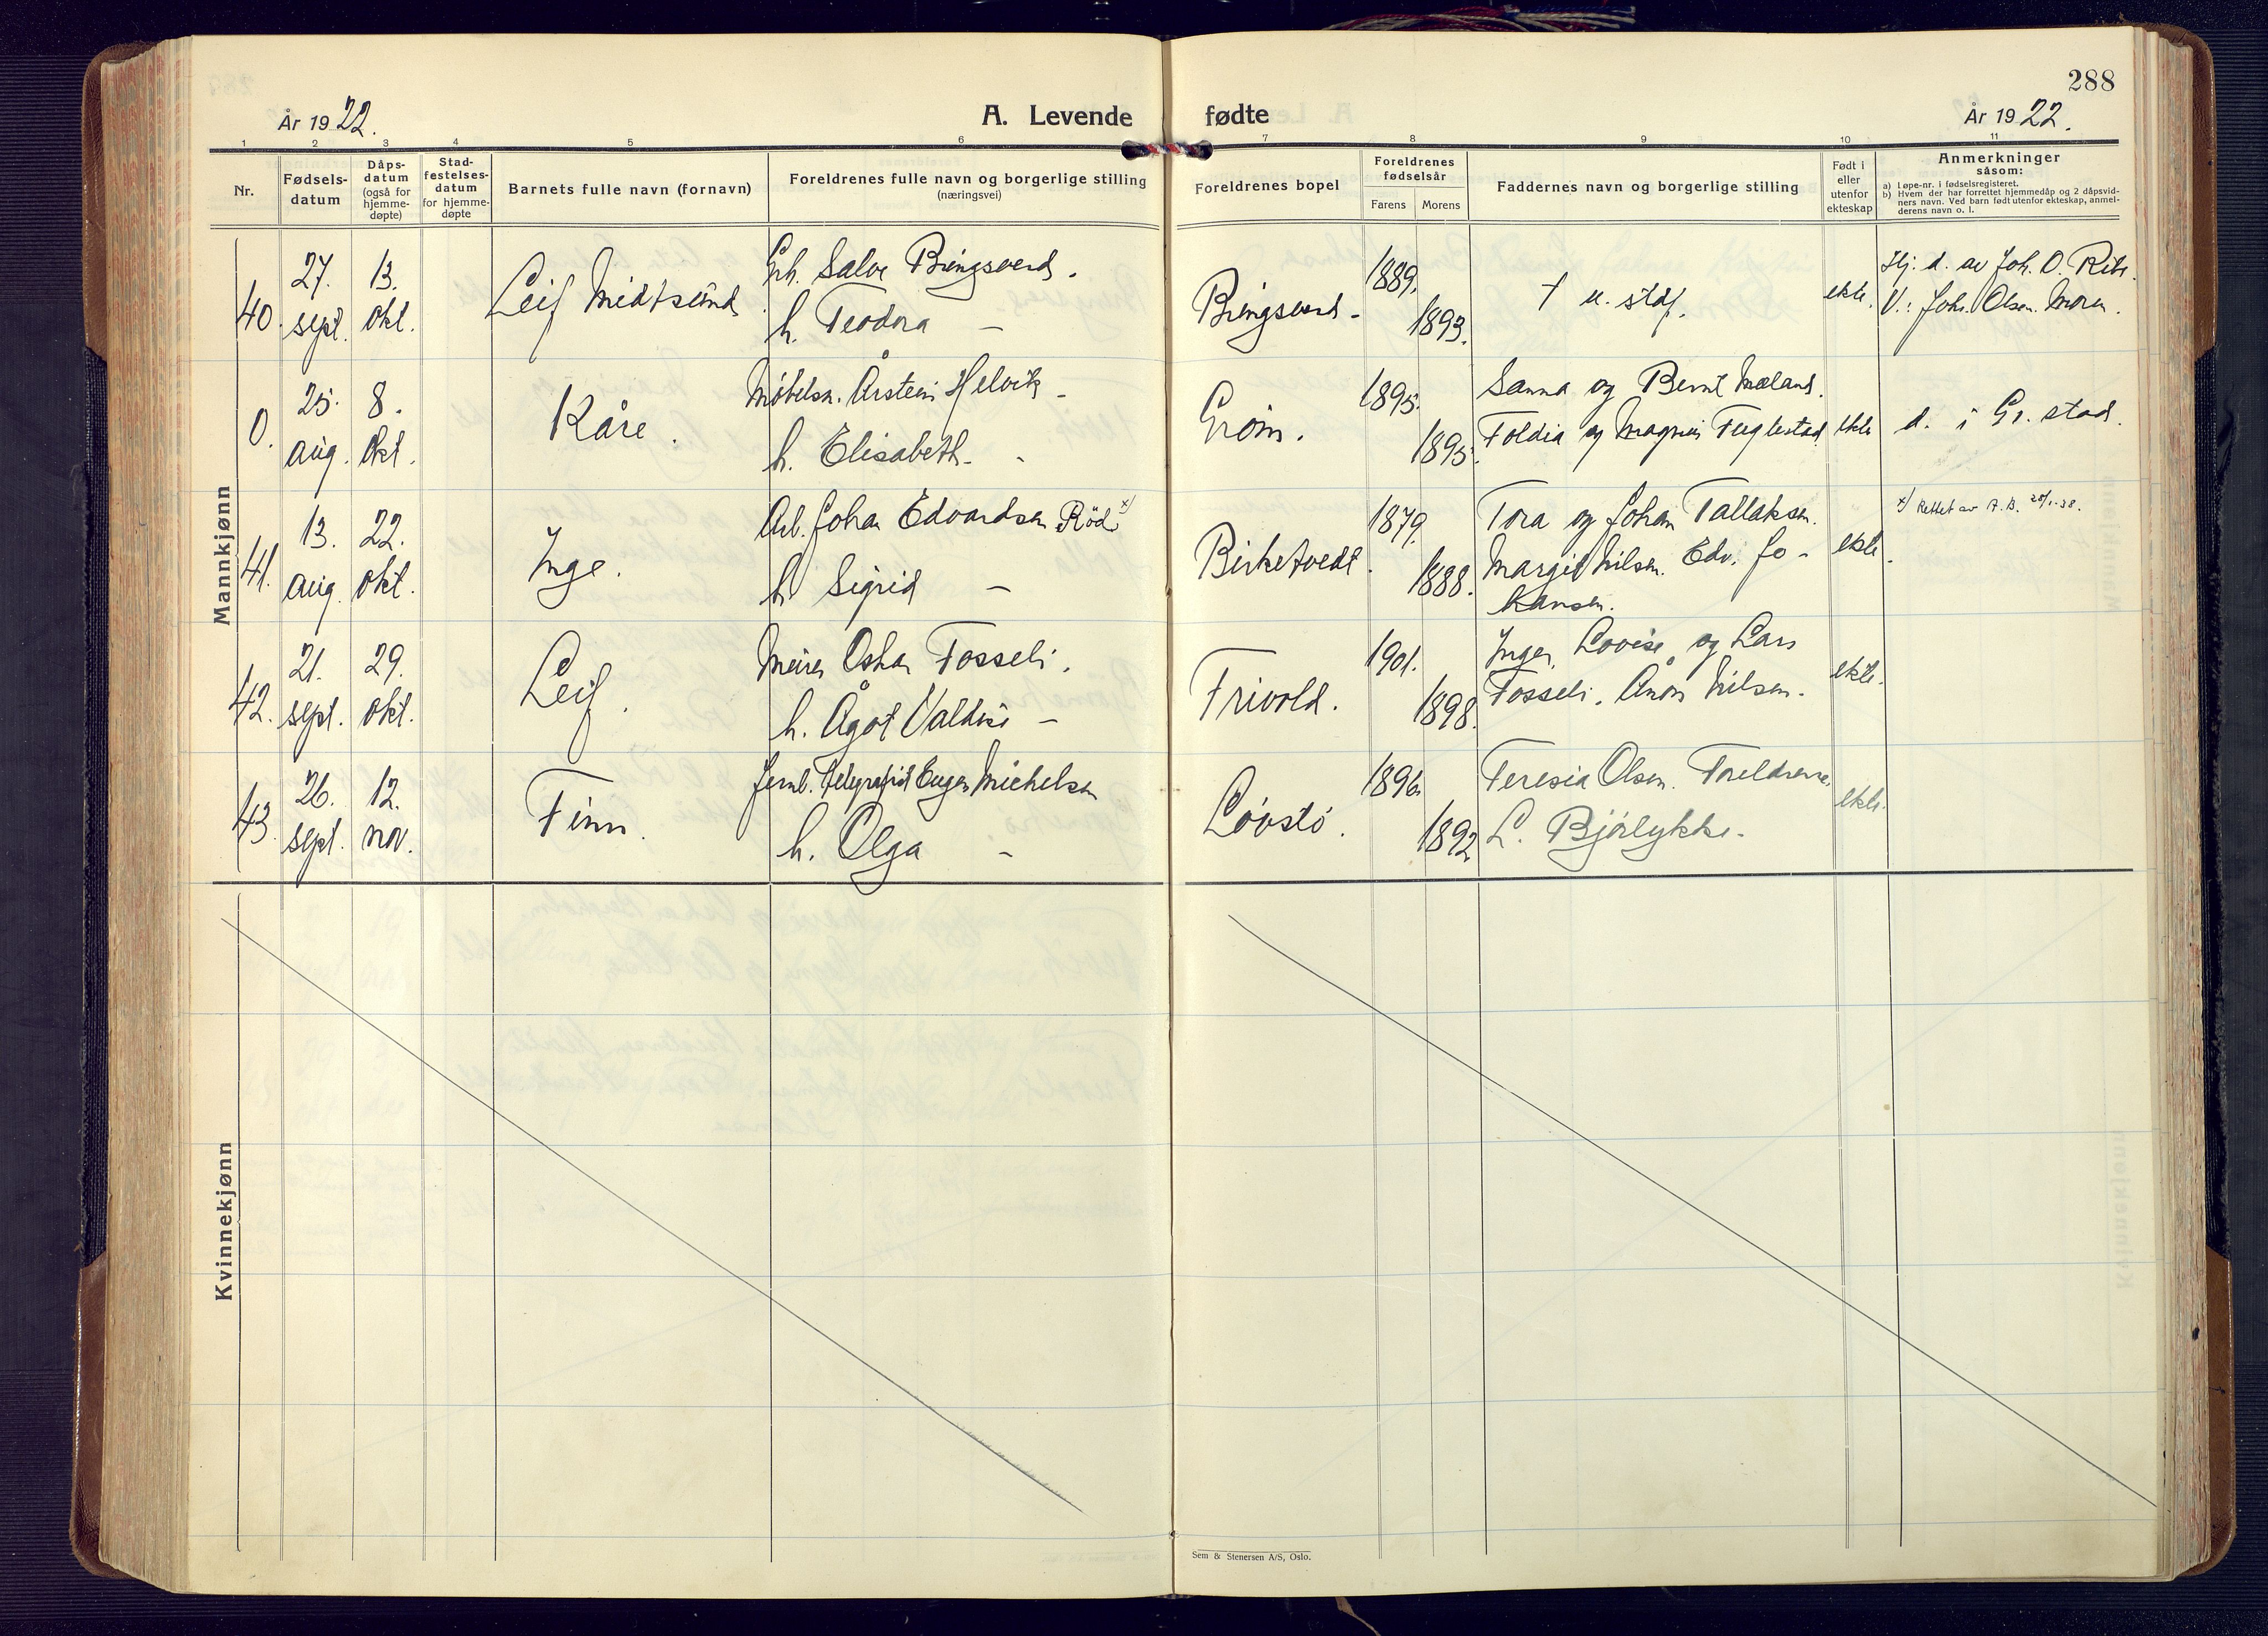 288
År 1922.
A. Levende fødte
År 1922.
1 2 3 4 5 6 7 8 9 10 11
Nr.
Fødsels-
datum
Dåps-
datum
(også for
hjemme-
døpte)
Stad-
festelses-
datum
for hjemme-
døpte
Barnets fulle navn (fornavn)
Foreldrenes fulle navn og borgerlige stilling
(næringsvei)
Foreldrenes bopel
Foreldrenes
fødselsår
Farens Morens
Faddernes navn og borgerlige stilling
Født i
eller
utenfor
ekteskap
Anmerkninger
såsom:
a) Løpe-nr. i fødselsregisteret.
b) Hvem der har forrettet hjemmedåp og 2 dåpsvid-
ners navn. Ved barn født utenfor ekteskap, anmel-
derens navn o. l.
Mannkjønn
40. 27. sept. 13. okt.
Leif Midtsund
Grh. Salve Bringsverd.
h. Teodora —
Bringsverd.
1889.
1893.
† u. staf.
ekte.
Hj. d. av Joh. O. Ribe.
V.: Joh. Olsen. Moren.
0. 25. aug. 8. okt.
Kåre.
Møbelsn. Årstein Helvik
h. Elisabeth -
Grøm.
1895.
1895.
Sanna og Bernt Mæland.
Toldia og Magnus Fuglestad
ekte
d. i Gr. stad.
41. 13. aug. 22. okt.
Inge.
Arb. Johan Edvardsen Röd x)
h. Sigrid —
Birketvedt.
1879.
1888.
Tora og Johan Tallaksen.
Margit Nilsen. Edv. Jo-
hansen.
ekte.
x) Rettet av
42. 21. sept. 29. okt.
Leif.
Oskar Fosseli.
h. Ågot Valdisi —
Frivold.
1901.
1898.
Inger, Lovise og Lars
Fosseli. Ånon Nilsen.
ekte.
43. 26. sept. 12. nov.
Finn.
Jernb. telegrafist Eugen Michelsen
h. Olga —
Løvstø.
1896.
1892
Teresia Olsen. Foreldrene.
L. Bjørlykke.
ekte.
Kvinnekjønn
Sem & Stenersen A/S, Oslo.